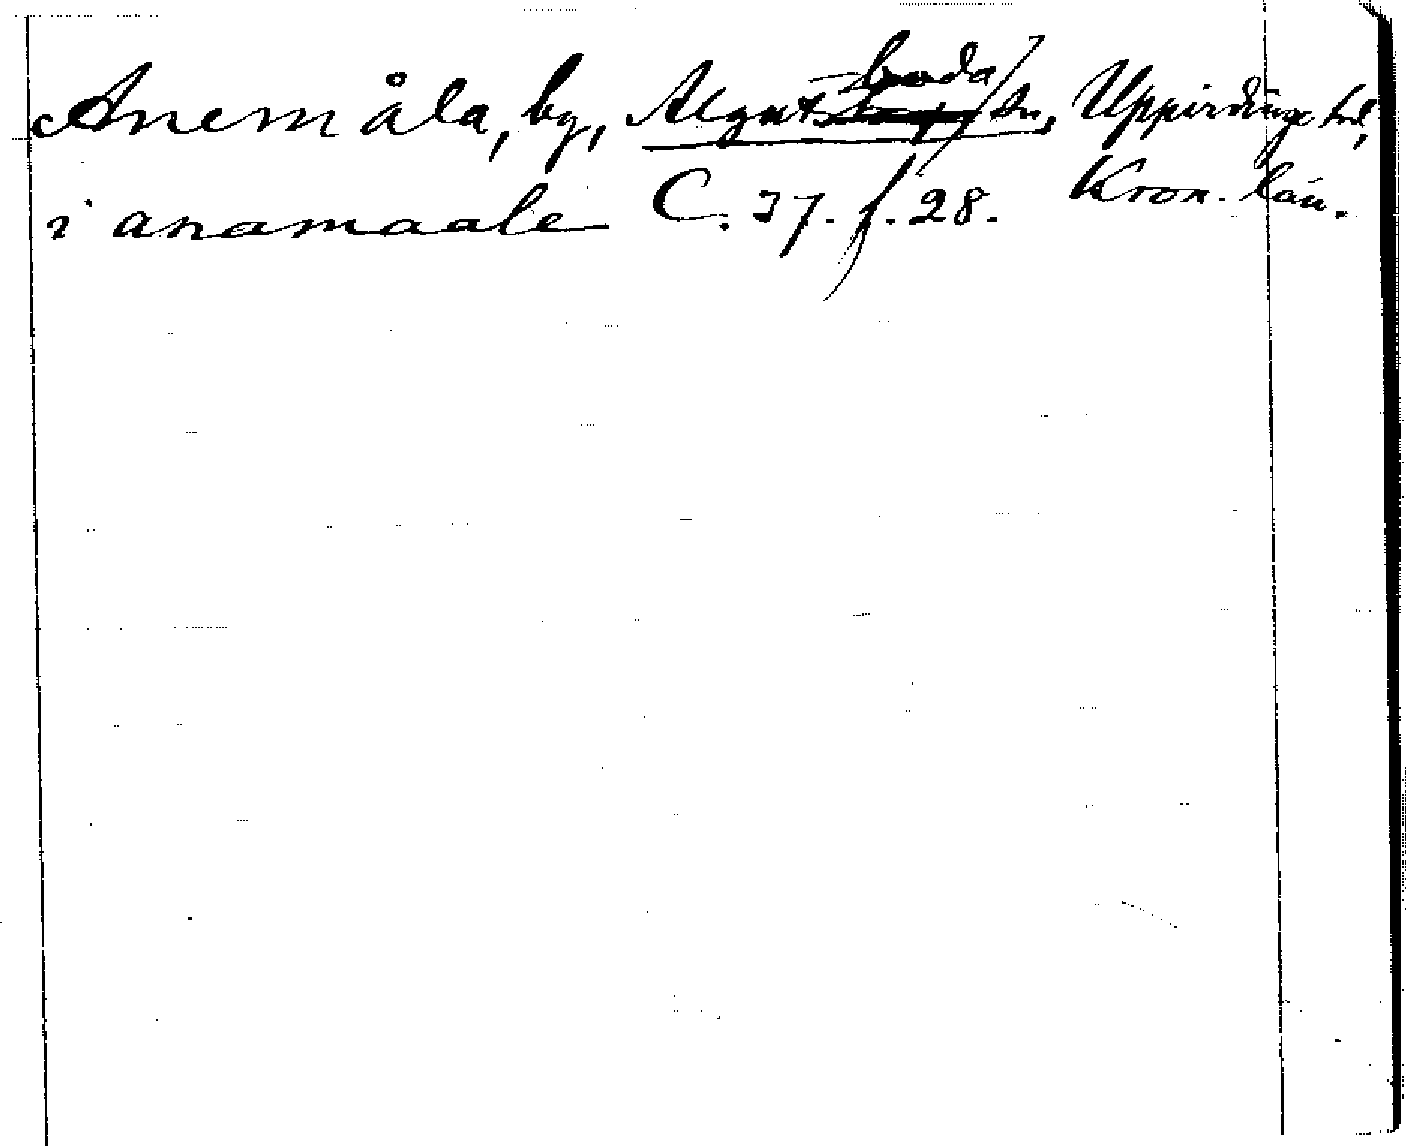 Anemåla, by, Algutsboda sn, Uppvidinge hd,
i anamaale C. 37. f. 28. Kron. län.